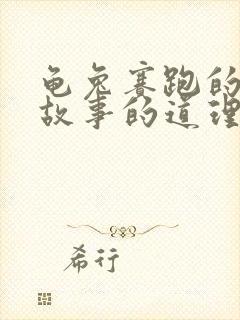 龟兔赛跑的
故事的道理
希行